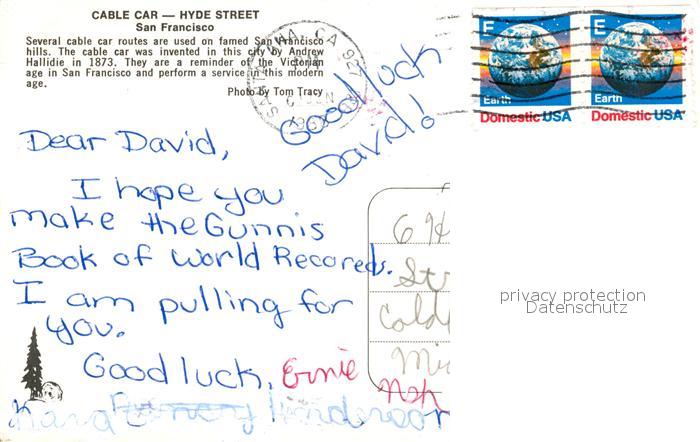 CABLE CAR — HYDE STREET
San Francisco
Several cable car routes are used on famed San Francisco
hills. The cable car was invented in this city by Andrew
Hallidie in 1873. They are a reminder of the Victorian
age in San Francisco and perform a service in this modern
age.
Photo by Tom Tracy
CA 927
E Earth Domestic USA
E Earth Domestic USA
Good luck
David!
Dear David,
I hope you
make the Gunnis
Book of World Recoreds.
I am pulling for
you.
Good luck, Ernie
privacy protection
Datenschutz